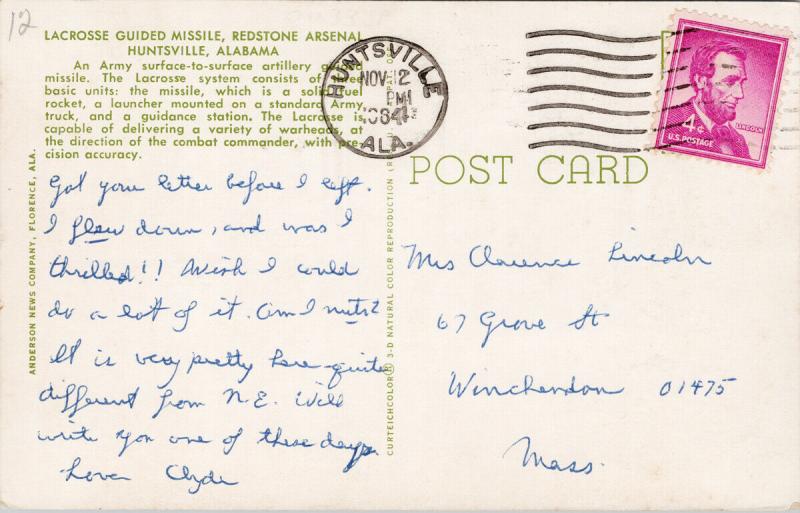 12
LACROSSE GUIDED MISSILE, REDSTONE ARSENAL
HUNTSVILLE, ALABAMA
An Army surface-to-surface artillery guided
missile. The Lacrosse system consists of three
basic units: the missile, which is a solid fuel
rocket, a launcher mounted on a standard Army
truck, and a guidance station. The Lacrosse is
capable of delivering a variety of warheads, at
the direction of the combat commander, with pre-
cision accuracy.
Got your letter before I left.
I flew down, and was I
thrilled!! Wish I could
do a lott of it. Am I nuts?
It is very pretty here-quite
different from N.E. Will
write you one of these days.
Love Clyde
ANDERSON NEWS COMPANY, FLORENCE, ALA.
CURTEICHCOLOR® 3-D NATURAL COLOR REPRODUCTION
HUNTSVILLE
NOV 12
PM
1964
ALA.
4¢
LINCOLN
U.S. POSTAGE
POST CARD
Mrs Clarence Lincoln
67 Grove St
Winchendon 01475
Mass.